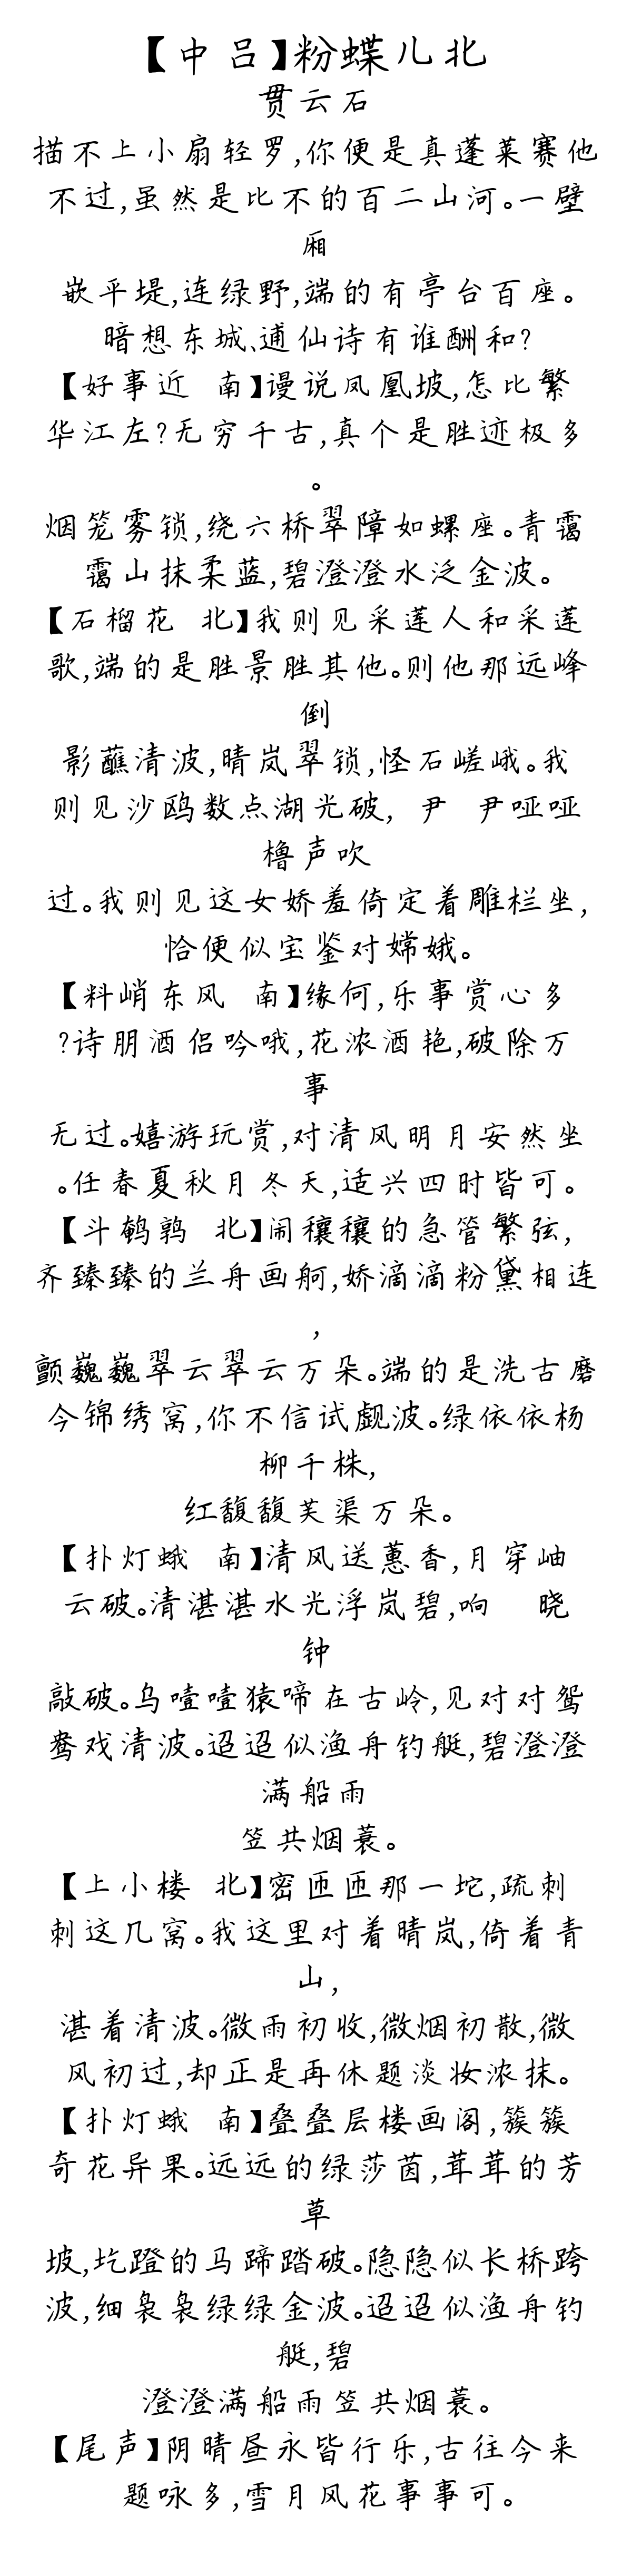 【中吕】粉蝶儿北
贯云石
描不上小扇轻罗,你便是真蓬莱赛他
不过,虽然是比不的百二山河。一壁
厢
嵌平堤,连绿野,端的有亭台百座。
暗想东城、逋仙诗有谁酬和?
【好事近 南】谩说凤凰坡,怎比繁
华江左?无穷千古,真个是胜迹极多
。
烟笼雾锁,绕六桥翠障如螺座。青霭
霭山抹柔蓝,碧澄澄水泛金波。
【石榴花 北】我则见采莲人和采莲
歌,端的是胜景胜其他。则他那远峰
倒
影蘸清波,晴岚翠锁,怪石嵯峨。我
则见沙鸥数点湖光破, 尹 尹哑哑
橹声吹
过。我则见这女娇羞倚定着雕栏坐,
恰便似宝鉴对嫦娥。
【料峭东风 南】缘何,乐事赏心多
?诗朋酒侣吟哦,花浓酒艳,破除万
事
无过。嬉游玩赏,对清风明月安然坐
。任春夏秋月冬天,适兴四时皆可。
【斗鹌鹑 北】闹穰穰的急管繁弦,
齐臻臻的兰舟画舸,娇滴滴粉黛相连
,
颤巍巍翠云翠云万朵。端的是洗古磨
今锦绣窝,你不信试觑波。绿依依杨
柳千株,
红馥馥芙渠万朵。
【扑灯蛾 南】清风送蕙香,月穿岫
云破。清湛湛水光浮岚碧,响 晓
钟
敲破。乌噎噎猿啼在古岭,见对对鸳
鸯戏清波。迢迢似渔舟钓艇,碧澄澄
满船雨
笠共烟蓑。
【上小楼 北】密匝匝那一坨,疏刺
刺这几窝。我这里对着晴岚,倚着青
山,
湛着清波。微雨初收,微烟初散,微
风初过,却正是再休题淡妆浓抹。
【扑灯蛾 南】叠叠层楼画阁,簇簇
奇花异果。远远的绿莎茵,茸茸的芳
草
坡,圪蹬的马蹄踏破。隐隐似长桥跨
波,细袅袅绿绿金波。迢迢似渔舟钓
艇,碧
澄澄满船雨笠共烟蓑。
【尾声】阴晴昼永皆行乐,古往今来
题咏多,雪月风花事事可。